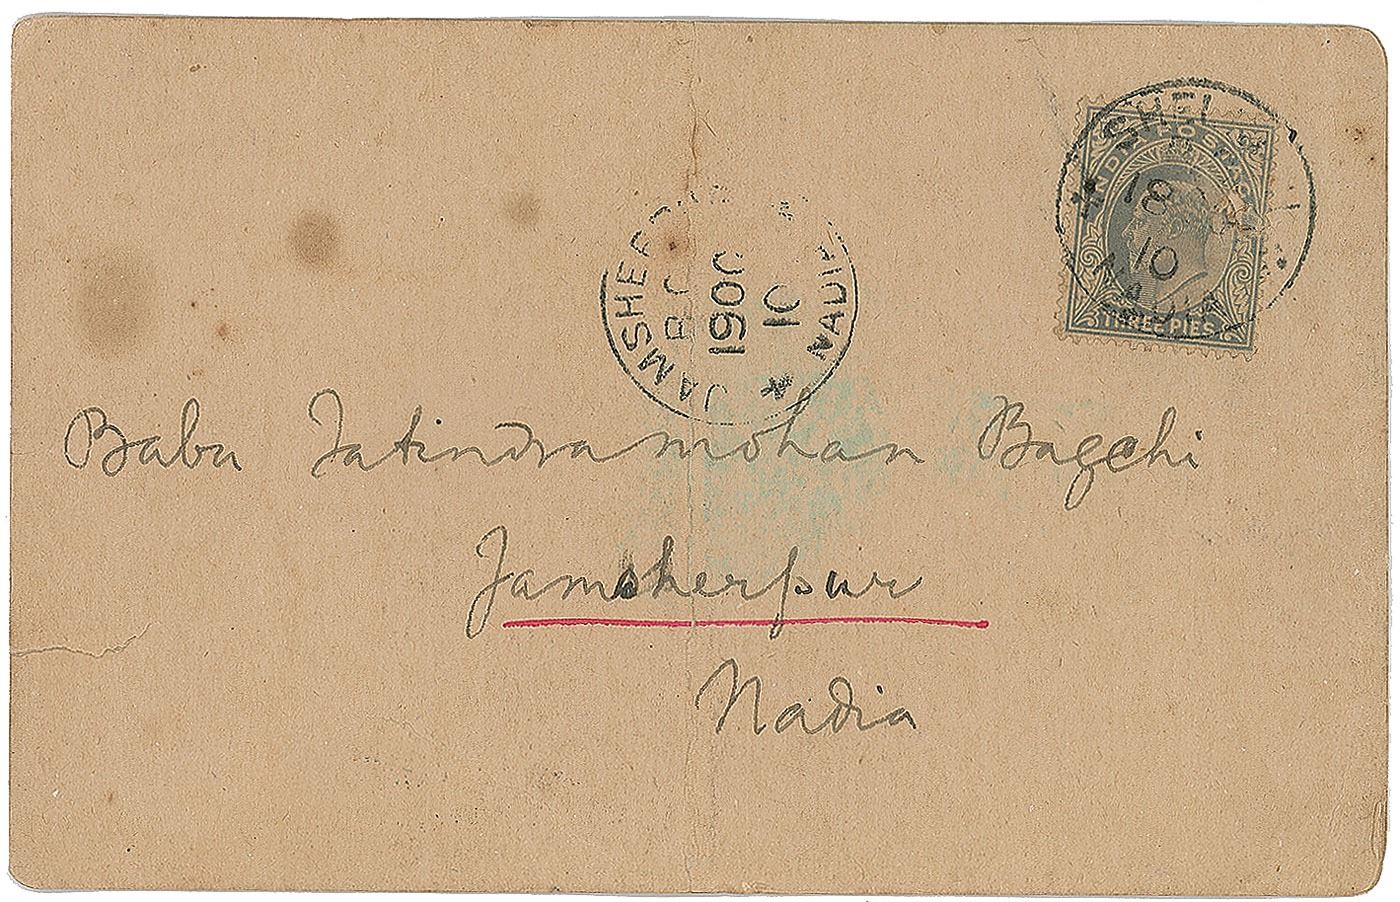 INDIA POSTAGE
THREE PIES
18
10
NADIA
JAMSHER
NADIA
10
Babu Jatindramohan Bagchi
Jamsherpur
Nadia